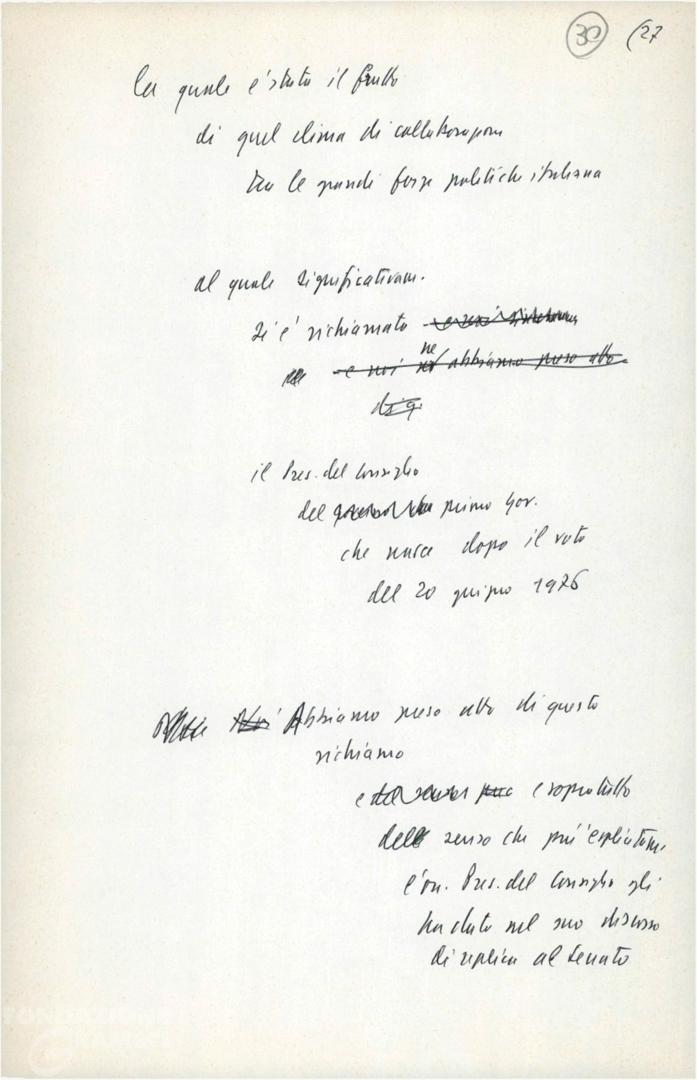 30 (27
la quale è stata il frutto
di quel clima di collaborazione
tra le grandi forze politiche italiane
al quale significativam.
si è richiamato
e noi ne abbiamo preso atto
il Pres. del Consiglio
del primo Gov.
che nasce dopo il voto
del 20 giugno 1976
Noi Abbiamo preso atto di questo
richiamo
e soprattutto
del senso che più esplicitam.
l'on. Pres. del Consiglio gli
ha dato nel suo discorso
di replica al Senato
FONDAZIONE
GRAMSCI